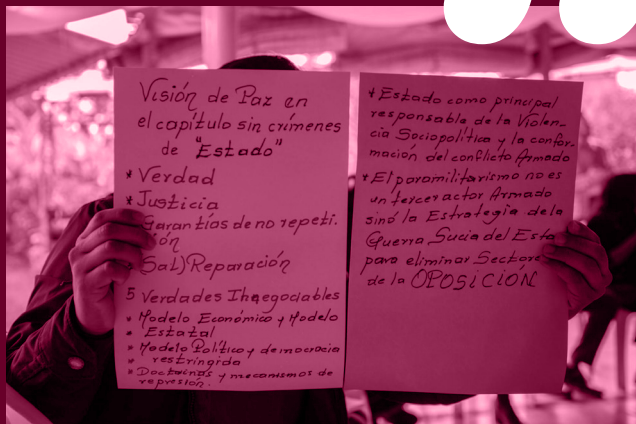 Visión de Paz en
el capítulo sin crímenes
de "Estado"
* Verdad
* Justicia
Garantías de no repeti.
ión
* (Sat) Reparación
5 Verdades Inegociables
* Modelo Económico y Modelo
* Estatal
* Modelo Político y democracia
* restringida
* Doctrinas y mecanismos de
represión.
* Estado como principal
responsable de la Violen-
cia Sociopolítica y la confor-
mación del conflicto Armado
* El paramilitarismo no es
un tercer actor Armado
sinó la Estrategia de la
Guerra Sucia del Esta
para eliminar Sectore
de la OPOSICIÓN